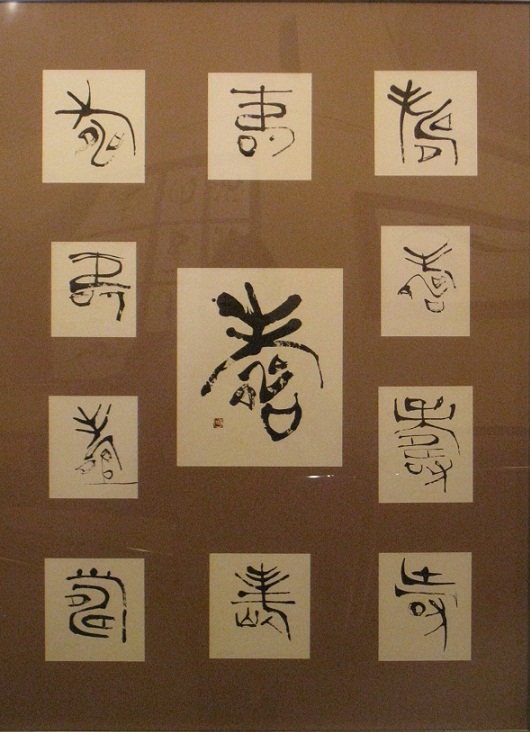 壽 壽 壽
壽 壽 壽
壽 壽
壽 壽 壽